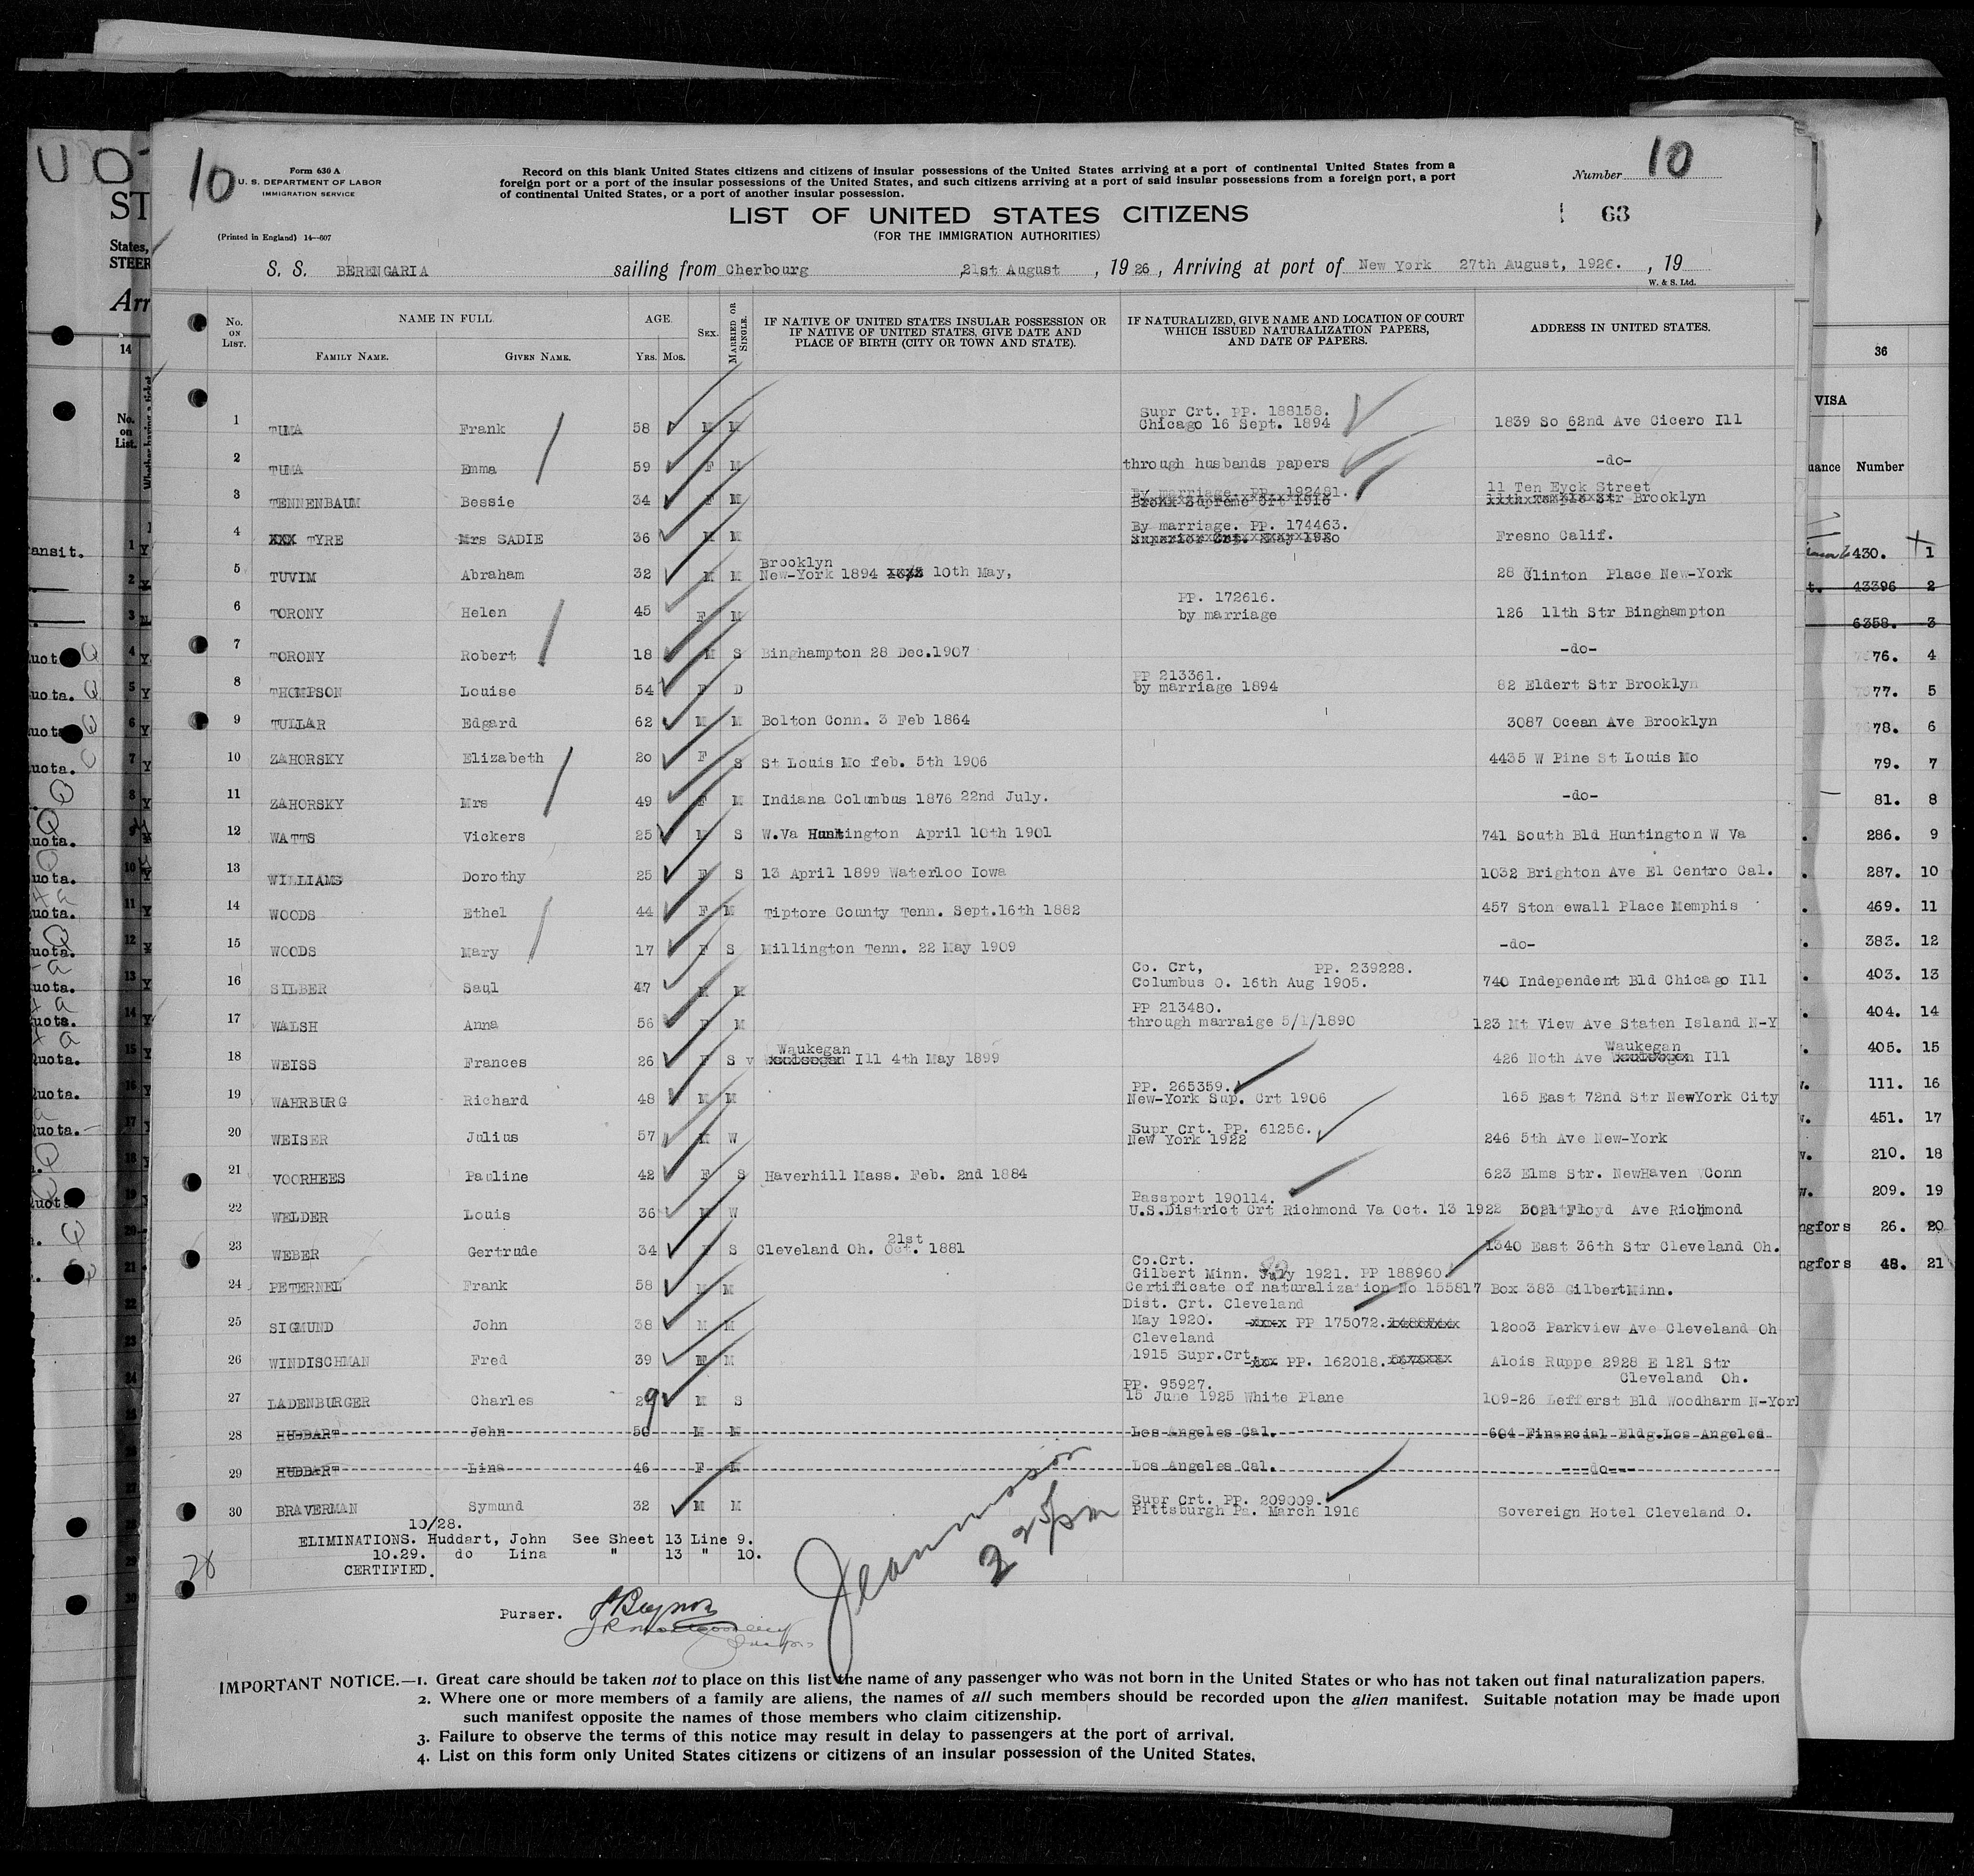 10
Form 630 A
U. S. DEPARTMENT OF LABOR
IMMIGRATION SERVICE
(Printed in England) 14—607
Record on this blank United States citizens and citizens of insular possessions of the United States arriving at a port of continental United States from a
foreign port or a port of the insular possessions of the United States, and such citizens arriving at a port of said insular possessions from a foreign port, a port
of continental United States, or a port of another insular possession.
Number 10
63
LIST OF UNITED STATES CITIZENS
(FOR THE IMMIGRATION AUTHORITIES)
S. S. BERENGARIA sailing from Cherbourg, 21st August, 1926, Arriving at port of New York 27th August, 1926., 19
W. & S. Ltd.
No. on List. NAME IN FULL. Family Name. Given Name. AGE. Yrs. Mos. Sex. Married or Single. IF NATIVE OF UNITED STATES INSULAR POSSESSION OR IF NATIVE OF UNITED STATES, GIVE DATE AND PLACE OF BIRTH (CITY OR TOWN AND STATE). IF NATURALIZED, GIVE NAME AND LOCATION OF COURT WHICH ISSUED NATURALIZATION PAPERS, AND DATE OF PAPERS. ADDRESS IN UNITED STATES.
1 TUMA Frank 58 M M Supr Crt. PP. 188158. Chicago 16 Sept. 1894 1839 So 62nd Ave Cicero Ill
2 TUMA Emma 59 F M through husbands papers -do-
3 TENNENBAUM Bessie 34 F M By marriage. PP. 192481. Bronx Supreme Crt 1916 11 Ten Eyck Street Str Brooklyn
4 XXX TYRE Mrs SADIE 36 M M By marriage. PP. 174463. Fresno Calif.
5 TUVIM Abraham 32 M M Brooklyn New-York 1894 10th May, 28 Clinton Place New-York
6 TORONY Helen 45 F M PP. 172616. by marriage 126 11th Str Binghampton
7 TORONY Robert 18 M S Binghampton 28 Dec.1907 -do-
8 THOMPSON Louise 54 F D PP 213361. by marriage 1894 82 Eldert Str Brooklyn
9 TULLAR Edgard 62 M M Bolton Conn. 3 Feb 1864 3087 Ocean Ave Brooklyn
10 ZAHORSKY Elizabeth 20 F S St Louis Mo feb. 5th 1906 4435 W Pine St Louis Mo
11 ZAHORSKY Mrs 49 F M Indiana Columbus 1876 22nd July. -do-
12 WATTS Vickers 25 M S W.Va Huntington April 10th 1901 741 South Bld Huntington W Va
13 WILLIAMS Dorothy 25 F S 13 April 1899 Waterloo Iowa 1032 Brighton Ave El Centro Cal.
14 WOODS Ethel 44 F M Tiptore County Tenn. Sept.16th 1882 457 Ston ewall Place Memphis
15 WOODS Mary 17 F S Millington Tenn. 22 May 1909 -do-
16 SILBER Saul 47 M M Co. Crt, PP. 239228. Columbus O. 16th Aug 1905. 740 Independent Bld Chicago Ill
17 WALSH Anna 56 F M PP 213480. through marraige 5/1/1890 123 Mt View Ave Staten Island N-Y
18 WEISS Frances 26 F S v Waukegan Ill 4th May 1899 426 Noth Ave Waukegan Ill
19 WAHRBURG Richard 48 M M PP. 265359. New-York Sup. Crt 1906 165 East 72nd Str NewYork City
20 WEISER Julius 57 M W Supr Crt. PP. 61256. New York 1922 246 5th Ave New-York
21 VOORHEES Pauline 42 F S Haverhill Mass. Feb. 2nd 1884 623 Elms Str. NewHaven Conn
22 WELDER Louis 36 M W Passport 190114. U.S.District Crt Richmond Va Oct. 13 1922 3021 Floyd Ave Richmond
23 WEBER Gertrude 34 F S Cleveland Oh. 21st Oct. 1881 1340 East 36th Str Cleveland Oh.
24 PETERNEL Frank 58 M M Co.Crt. Gilbert Minn. July 1921. PP 188960 Certificate of naturalization No 155817 Box 383 GilbertMinn.
25 SIGMUND John 38 M M Dist. Crt. Cleveland May 1920. PP 175072. 12003 Parkview Ave Cleveland Oh
26 WINDISCHMAN Fred 39 M M Cleveland 1915 Supr.Crt. PP. 162018. Alois Ruppe 2928 E 121 Str Cleveland Oh.
27 LADENBURGER Charles 29 M S PP. 95927. 15 June 1925 White Plane 109-26 Lefferst Bld Woodharm N-York
28 HUDDART John 50 M M Los Angeles Cal. 604 Financial Bldg.Los Angeles
29 HUDDART Lina 46 F M Los Angeles Cal. ---do---
30 BRAVERMAN Symund 32 M M Supr Crt. PP. 209009. Pittsburgh Pa. March 1916 Sovereign Hotel Cleveland O.
10/28.
ELIMINATIONS. Huddart, John See Sheet 13 Line 9.
10.29. do Lina " 13 " 10.
CERTIFIED.
Purser.
IMPORTANT NOTICE.—1. Great care should be taken not to place on this list the name of any passenger who was not born in the United States or who has not taken out final naturalization papers.
2. Where one or more members of a family are aliens, the names of all such members should be recorded upon the alien manifest. Suitable notation may be made upon
such manifest opposite the names of those members who claim citizenship.
3. Failure to observe the terms of this notice may result in delay to passengers at the port of arrival.
4. List on this form only United States citizens or citizens of an insular possession of the United States.
36
VISA
Number
430. 1
43396 2
6358. 3
76. 4
77. 5
78. 6
79. 7
81. 8
286. 9
287. 10
469. 11
383. 12
403. 13
404. 14
405. 15
111. 16
451. 17
210. 18
209. 19
26. 20
48. 21